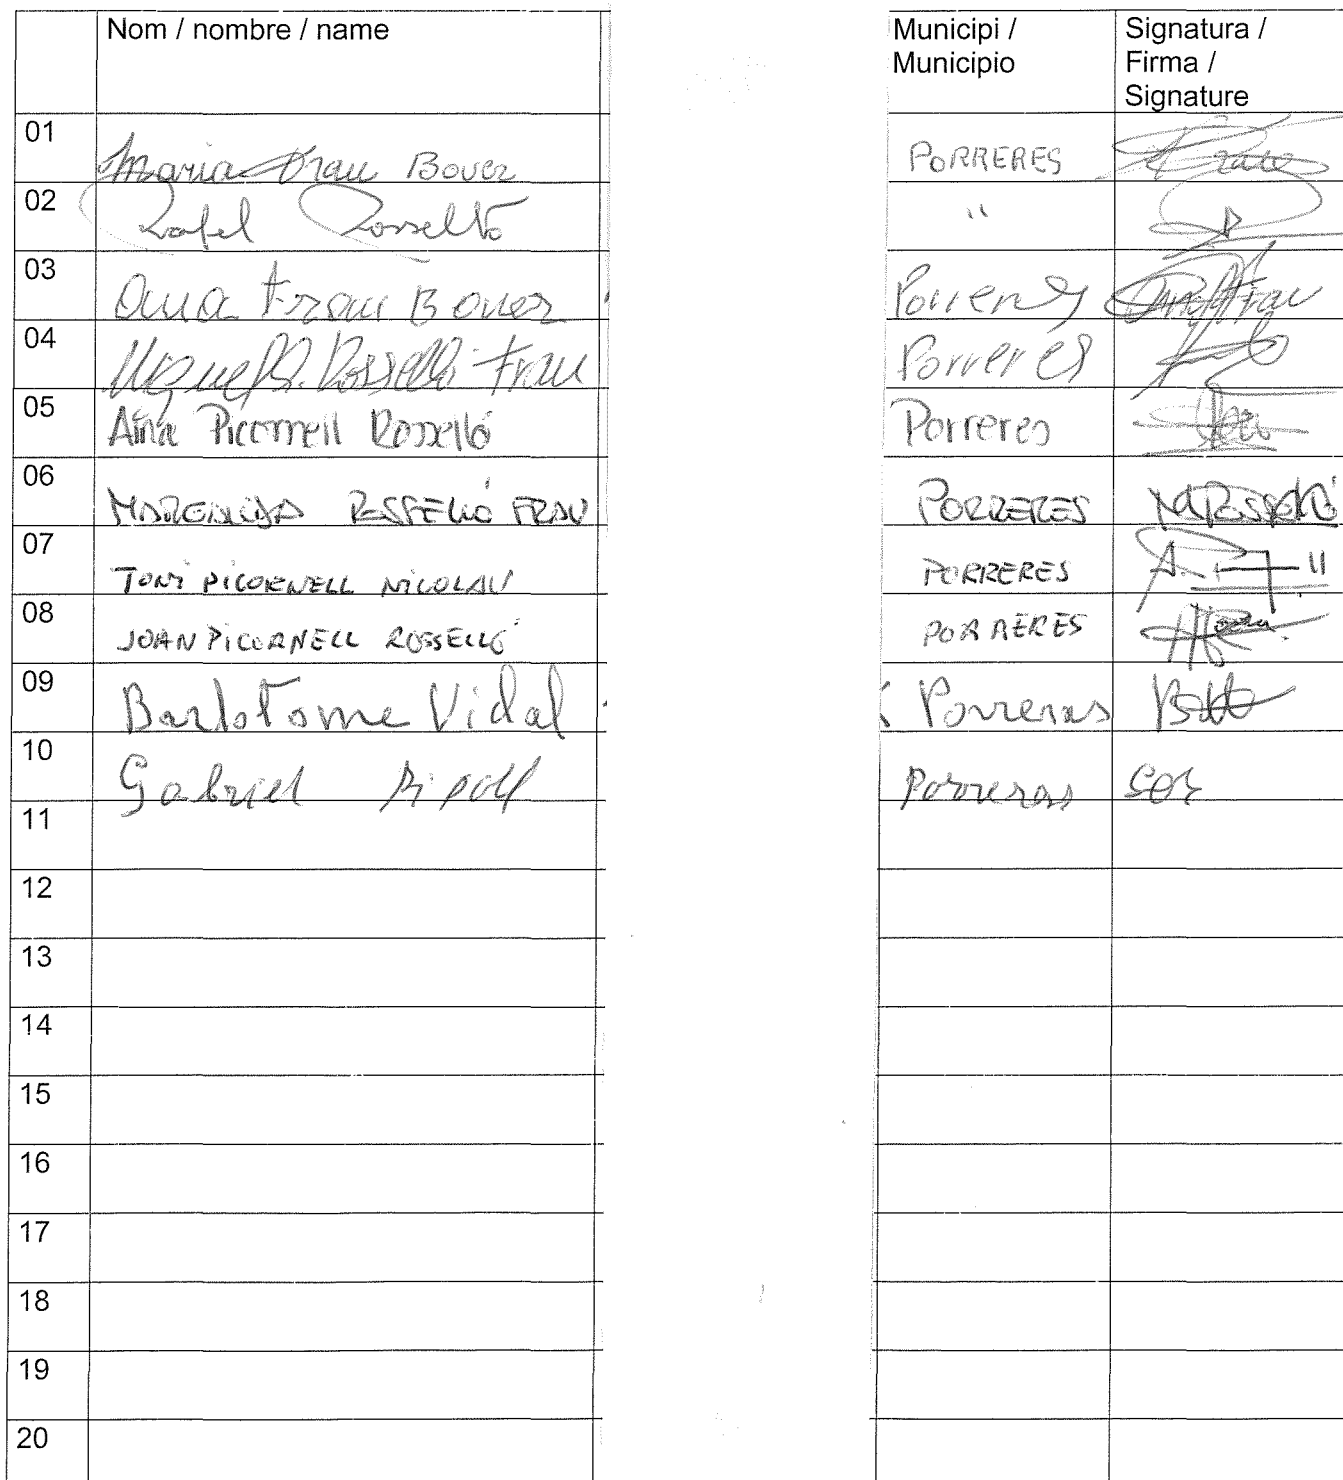 Nom / nombre / name Municipi / Signatura /
Municipio Firma /
Signature
01 Maria Frau Bover PORRERES Frau
02 Rafel Rosselló "
03 Ana Frau Bover Porreres Ana Frau
04 Miquel Rosselló Frau Porreres
05 Aina Picornell Rosselló Porreres
06 MARGALIDA ROSSELLÓ FRAU PORRERES M Rosselló
07 TONI PICORNELL NICOLAU PORRERES
08 JOAN PICORNELL ROSSELLÓ PORRERES
09 Bartolome Vidal Porreras
10 Gabriel Ripoll Porreras
11
12
13
14
15
16
17
18
19
20